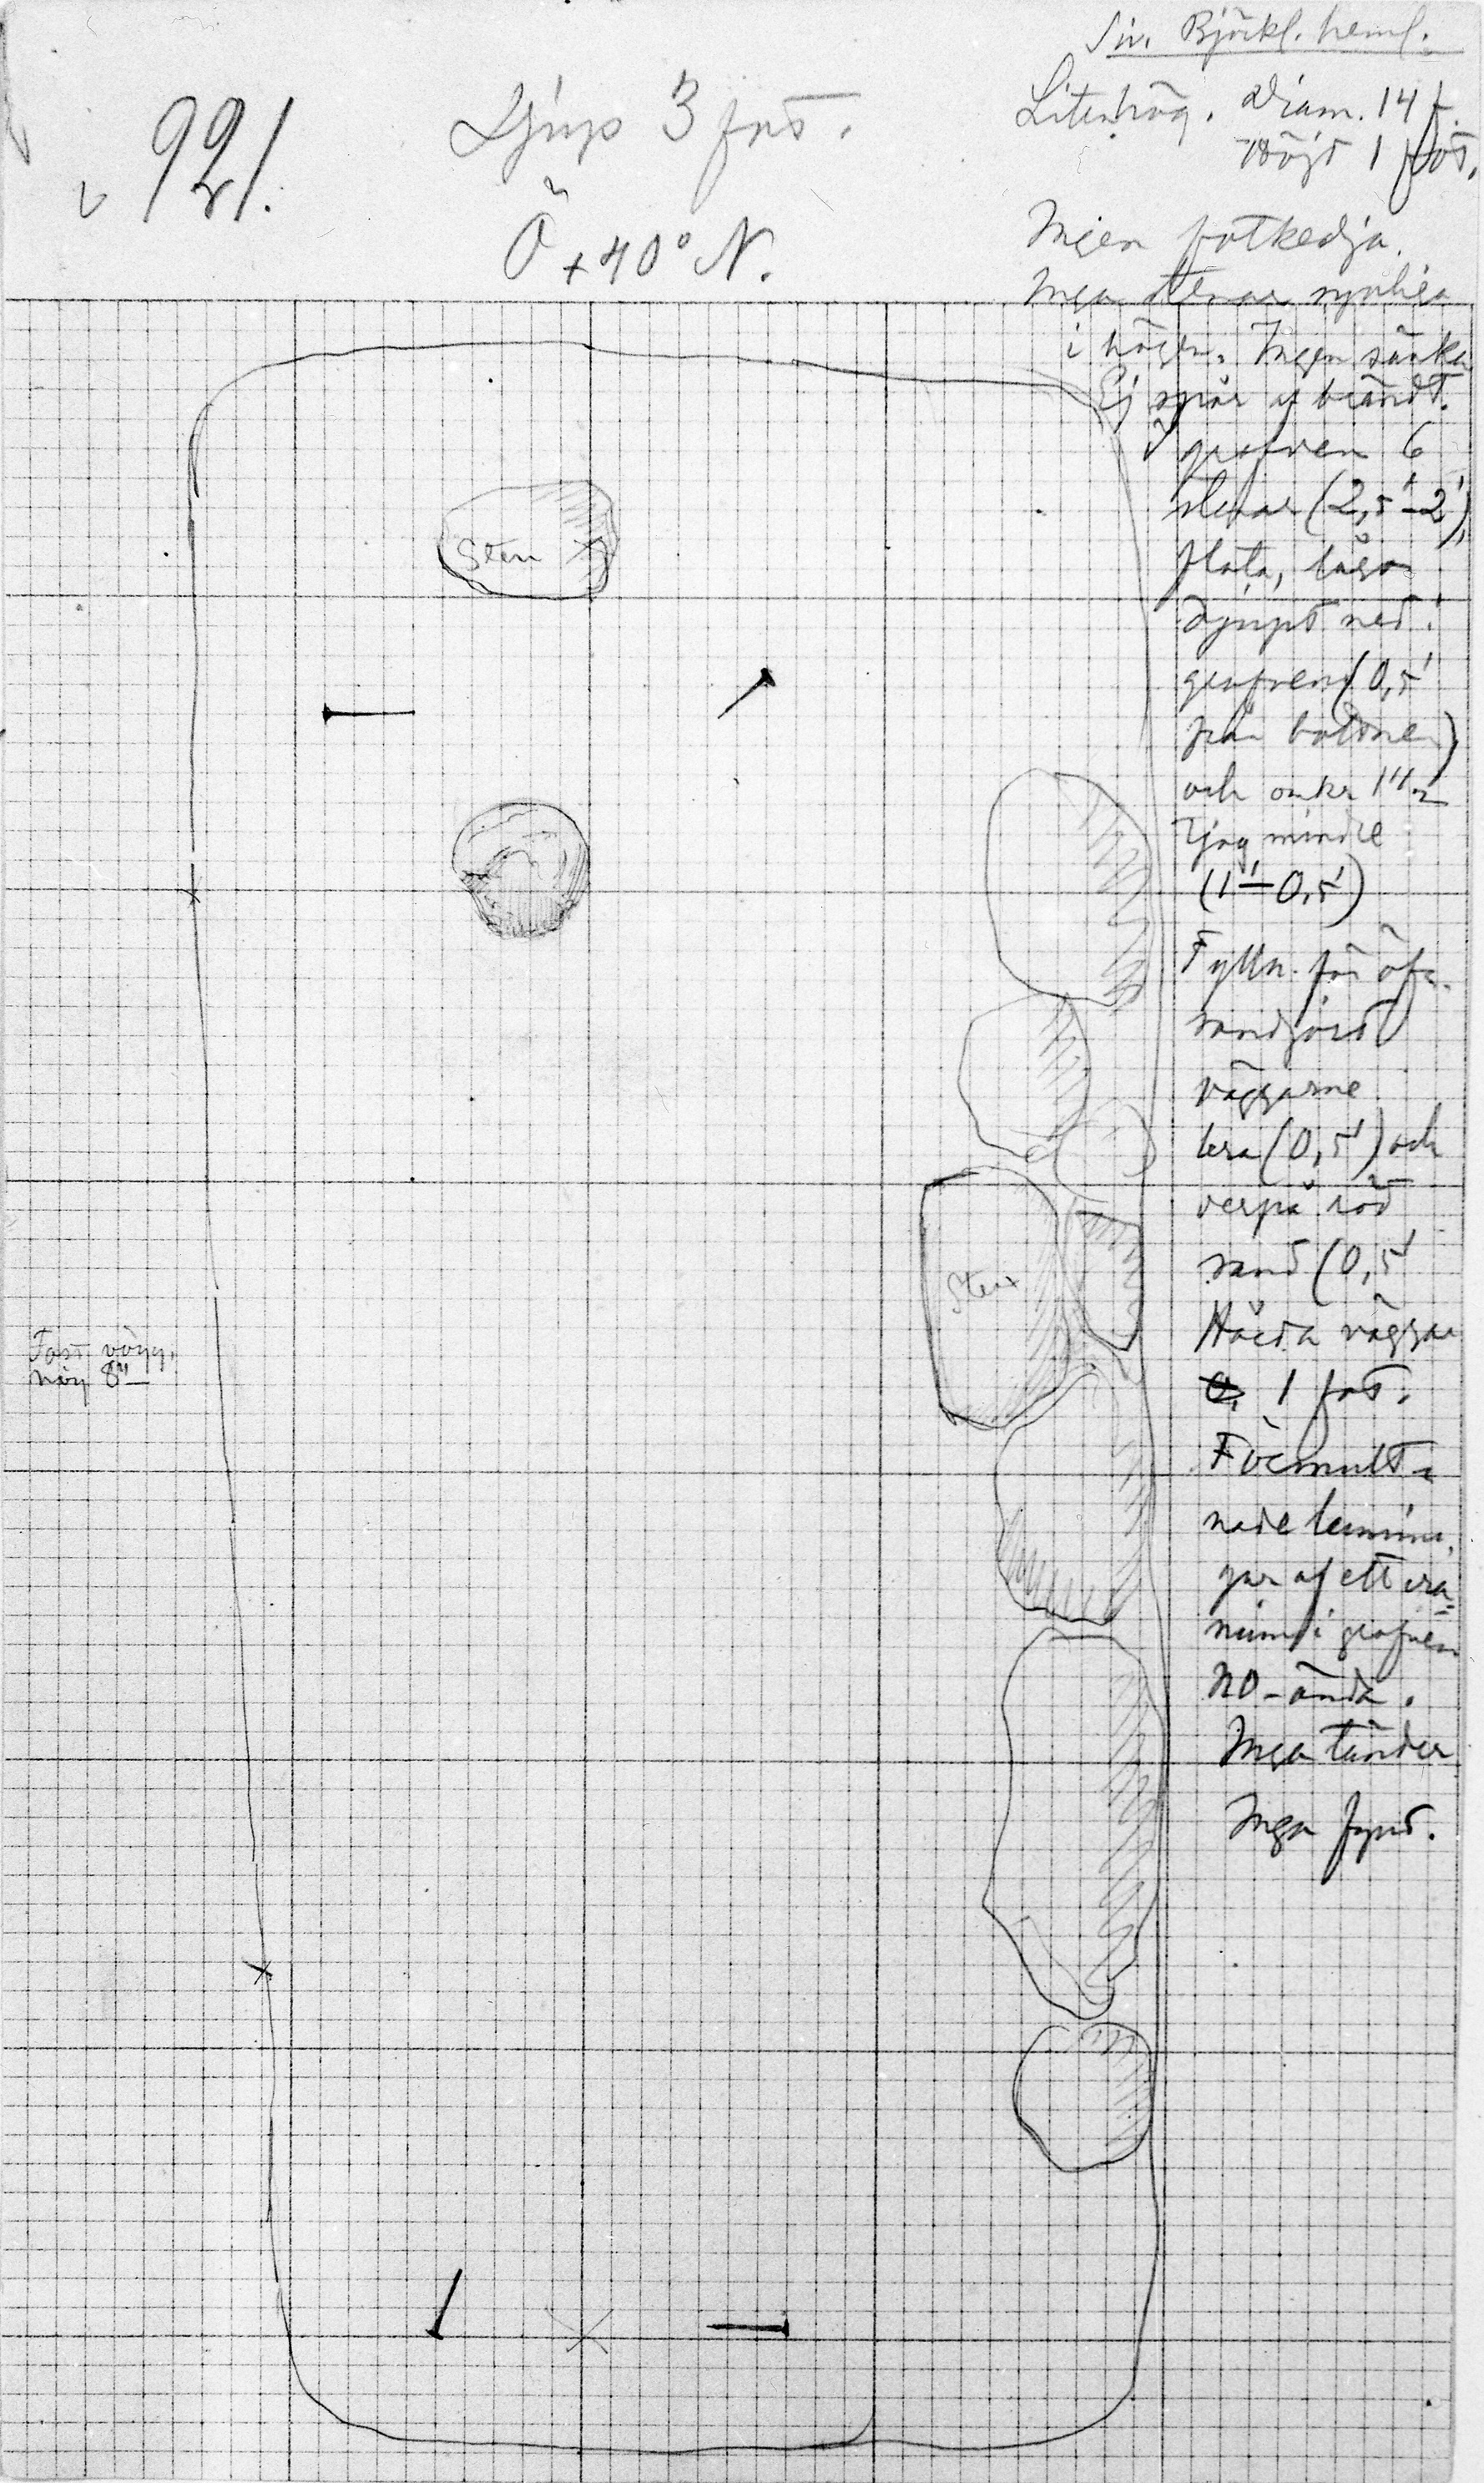 921.
Djup 3 fot.
Ö + 40° N.
Björkl. heml.
Liten hög. Diam. 14 f.
Höjd 1 fot.
Ingen fotkedja.
Inga stenar synliga
i högen. Ingen sänka
Ej spår af brändt.
I grafven 6
stenar (2,5'-2')
flata, låga
djupt ned i
grafven (0,5'
från bottnen)
och omkr 1
mindre
(1'-0,5')
Fylln. för öfr.
sandjord
väggarne
lera (0,5') och
derpå röd
sand (0,5'
Hårda väggar
1 fot.
Förmult-
nade lämnin-
gar af ett cra-
nium i grafven
NO-ända.
Inga tänder
Inga fynd.
Sten
Sten
Fast vägg.
hög 8"